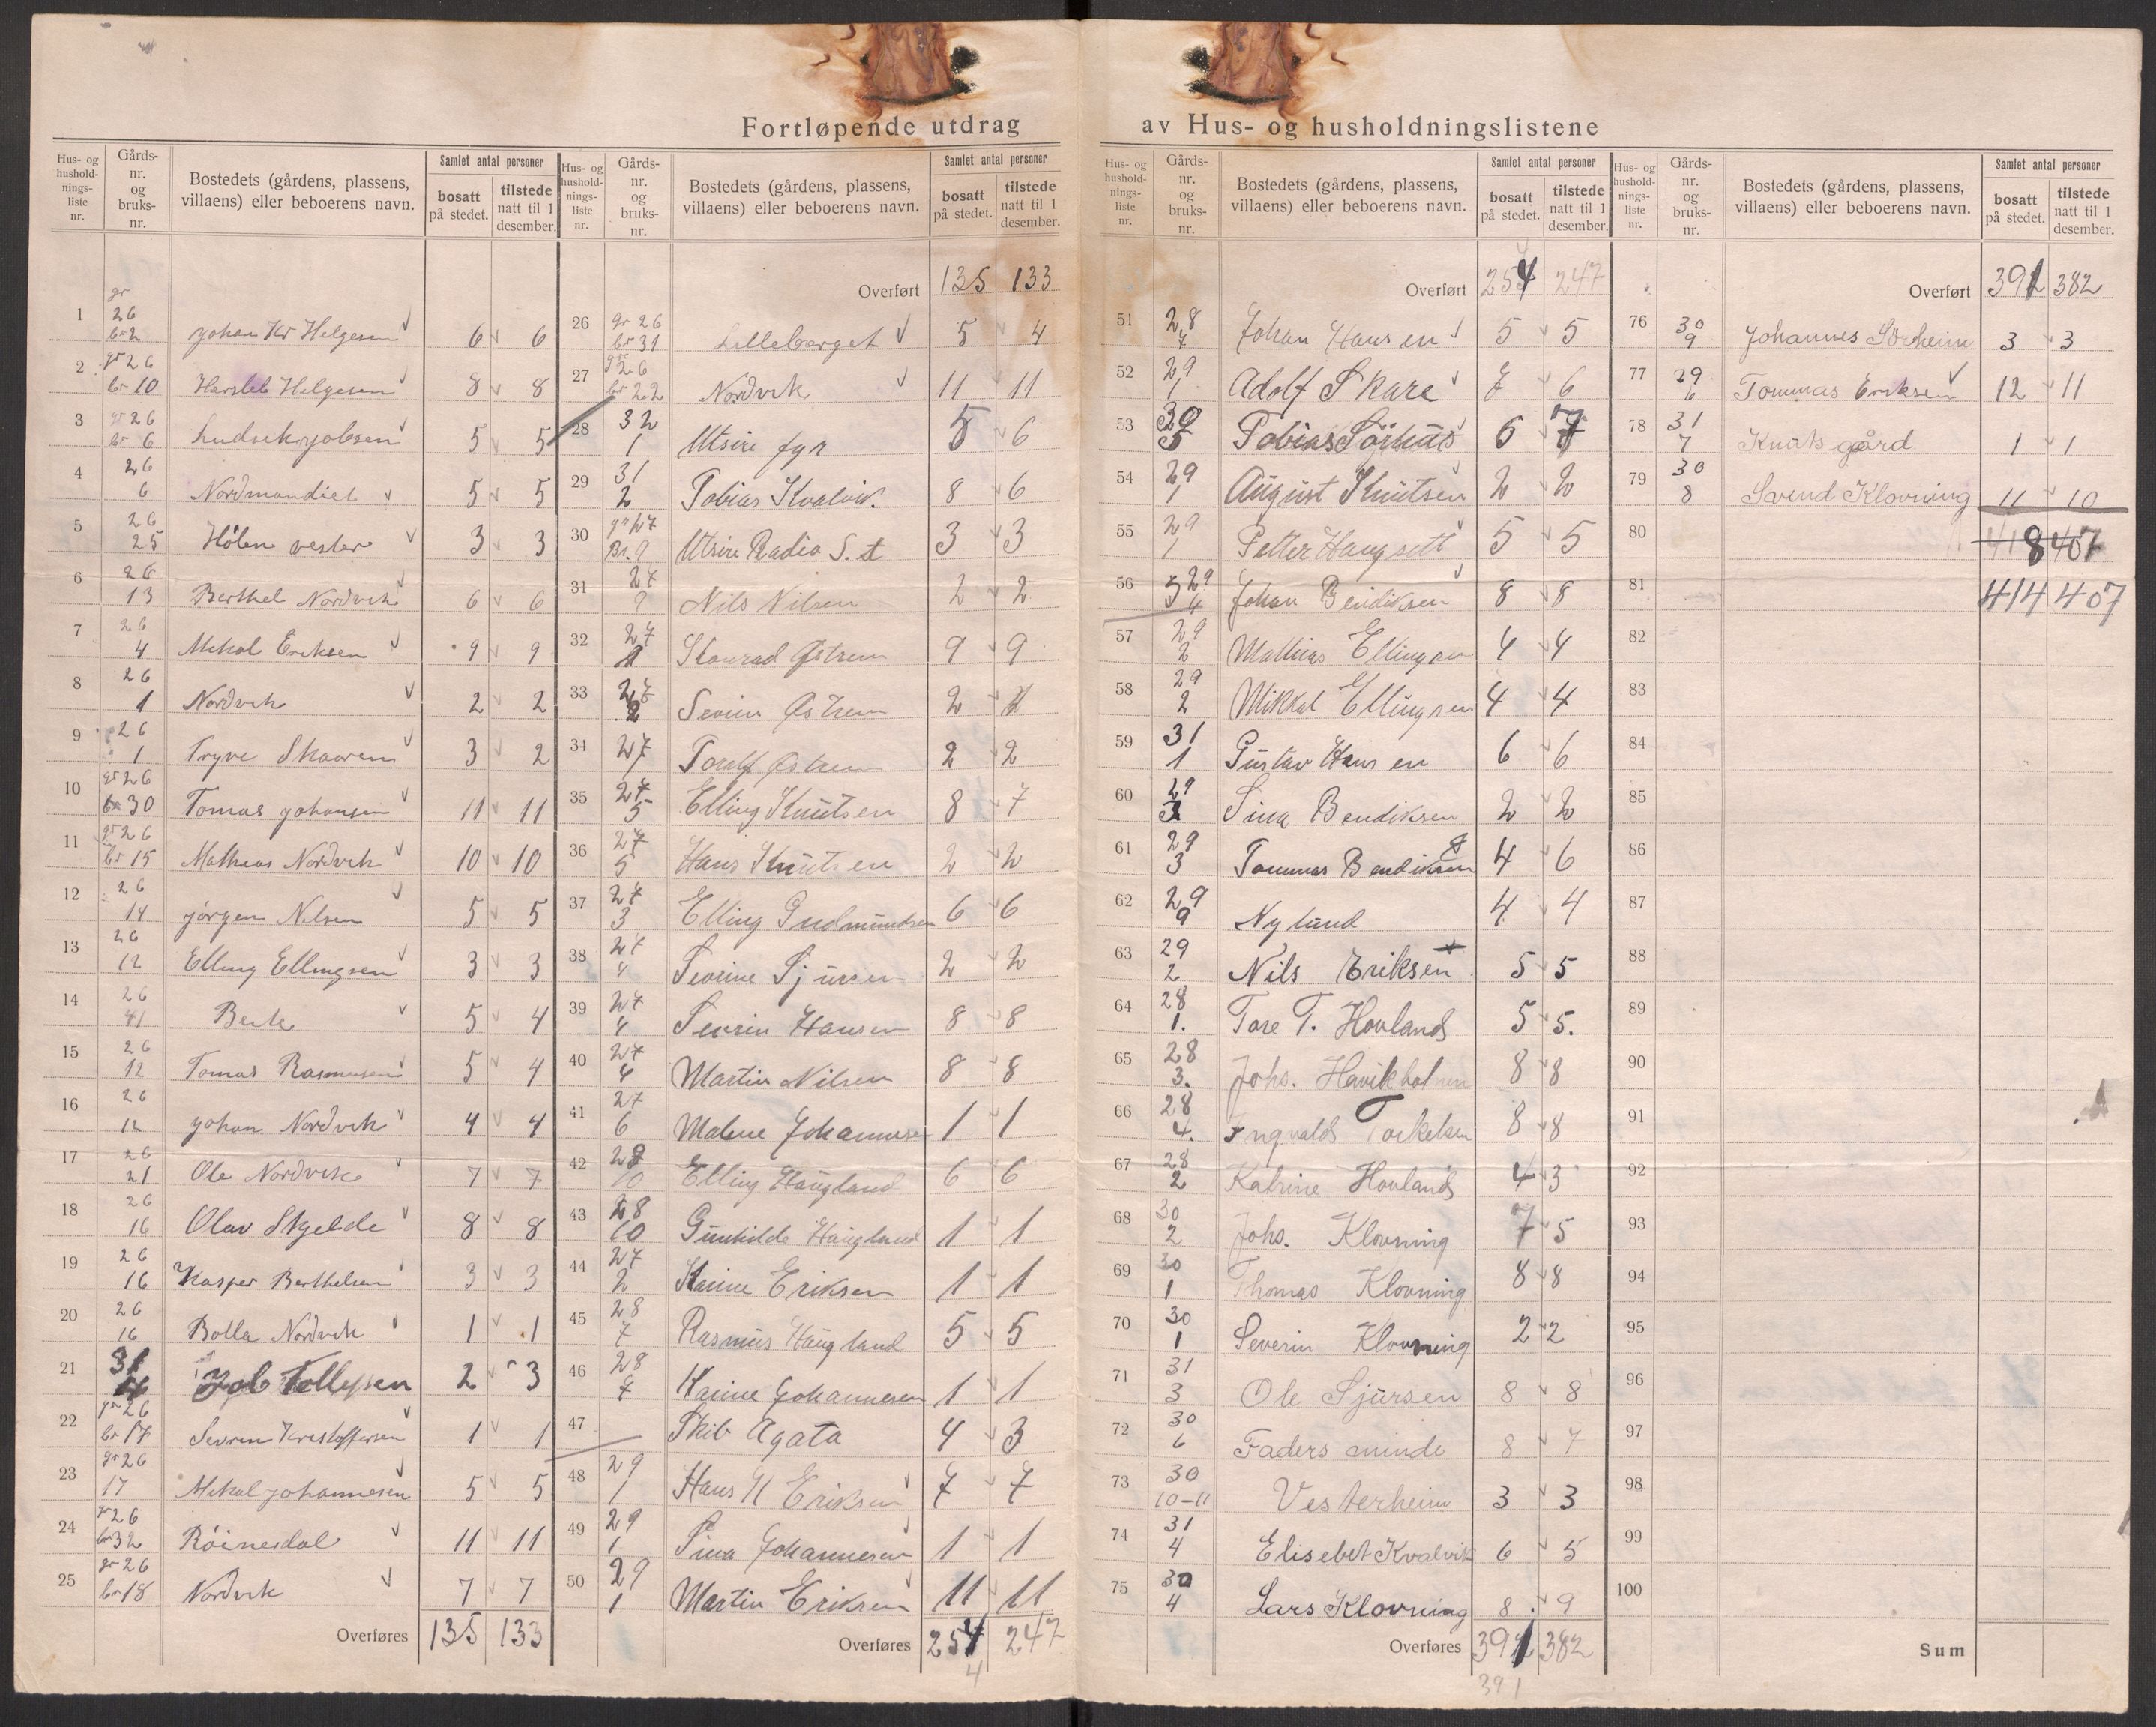 Fortløpende utdrag av Hus- og husholdningslistene
Hus- og hushold-nings-liste nr. Gårds-nr. og bruks-nr. Bostedets (gårdens, plassens, villaens) eller beboerens navn. Samlet antal personer bosatt på stedet. tilstede natt til 1 desember.
1 gr 26 br 2 Johan Kr Helgesen 6 6
2 gr 26 br 10 Harsleb Helgesen 8 8
3 gr 26 br 6 5 5
4 26 6 Nordmandiel 5 5
5 26 25 Hølen vester 3 3
6 26 13 Berthel Nordvik 6 6
7 26 4 Mikal Eriksen 9 9
8 26 1 Nordvik 2 2
9 26 1 Tryve Skaarem 3 2
10 gr 26 br 30 Tomas Johansen 11 11
11 gr 26 br 15 Mathias Nordvik 10 10
12 26 14 Jørgen Nilsen 5 5
13 26 12 Elling Ellingsen 3 3
14 26 41 5 4
15 26 12 Tomas Rasmusen 5 4
16 26 12 Johan Nordvik 4 4
17 26 21 Ole Nordvik 7 7
18 26 16 Olav Skjelde 8 8
19 26 16 Kasper Berthelsen 3 3
20 26 16 Bolla Nordvik 1 1
21 31 4 Job Tollefsen 2 3
22 gr 26 br 17 Sevrin Kristoffersen 1 1
23 gr 26 17 Mikal Johannesen 5 5
24 gr 26 br 32 Røinesdal 11 11
25 gr 26 br 18 Nordvik 7 7
Overføres 135 133
Hus- og hushold-nings-liste nr. Gårds-nr. og bruks-nr. Bostedets (gårdens, plassens, villaens) eller beboerens navn. Samlet antal personer bosatt på stedet. tilstede natt til 1 desember.
Overført 135 133
26 gr 26 br 31 Lilleberget 5 4
27 gr 26 br 22 Nordvik 11 11
28 32 1 Utsire fyr 5 6
29 31 2 Tobias Kvalvik. 8 6
30 gr 27 Br. 9 Utsire Radio S. t 3 3
31 27 9 Nils Nilsen 2 2
32 27 1 Konrad Østrem 9 9
33 27 2 Sevrin Østrem 2
34 27 1 Torolf Østrem 2 2
35 27 5 Elling Knutsen 8 7
36 27 5 Hans Knutsen 2 2
37 27 3 Elling Gudmundsen 6 6
38 27 4 Sevrine Sjursen 2 2
39 27 4 Sevrin Hansen 8 8
40 27 4 Martin Nilsen 8 8
41 27 6 Malene Johannesen 1 1
42 28 10 Elling Haugland 6 6
43 28 10 Gunhilde Haugland 1 1
44 27 2 Karine Eriksen 1 1
45 28 7 Rasmus Haugland 5 5
46 28 7 Karine Johannesen 1 1
47 Skib Agata 4 3
48 29 1 Hans H Eriksen 7 7
49 29 1 Sina Johannesen 1 1
50 29 1 Martin Eriksen 11 11
Overføres 254 247
4
Hus- og hushold-nings-liste nr. Gårds-nr. og bruks-nr. Bostedets (gårdens, plassens, villaens) eller beboerens navn. Samlet antal personer bosatt på stedet. tilstede natt til 1 desember.
Overført 254 247
51 28 7 Johan Hansen 5 5
52 29 1 Adolf Skare 7 6
53 30 5 Tobias 6 7
54 29 1 August Knutsen 2 2
55 29 1 Petter Haugsett 5 5
56 29 4 Johan Bendiksen 8 8
57 29 2 Mathias Ellingsen 4 4
58 29 2 Mikkal Ellingsen 4 4
59 31 1 Gustav Hansen 6 6
60 29 3 Sina Bendiksen 2 2
61 29 3 Tommas Bendiksen 4 6
62 29 9 Nyland 4 4
63 29 2 Nils Eriksen 5 5
64 28 1. Tore T. Hovland 5 5.
65 28 3. Johs. Havikholmen 8 8
66 28 4. Ingvald Torkelsen 8 8
67 28 2 Katrine Hovland 4 3
68 30 2 Johs. Klovning 7 5
69 30 1 Thomas Klovning 8 8
70 30 1 Severin Klovning 2 2
71 31 3 Ole Sjursen 8 8
72 30 6 Faders minde 8 7
73 30 10-11 Vesterheim 3 3
74 31 4 Elisebet Kvalvik 6 5
75 30 4 Lars Klovning 8 9
Overføres 391 382
391
Hus- og hushold-nings-liste nr. Gårds-nr. og bruks-nr. Bostedets (gårdens, plassens, villaens) eller beboerens navn. Samlet antal personer bosatt på stedet. tilstede natt til 1 desember.
Overført 391 382
76 30 9 Johannes Sørheim 3 3
77 29 6 Tommas Eriksen 12 11
78 31 7 Knuts gård 1 1
79 30 8 Svend Klovning 11 10
80 418 407
81 414 407
82
83
84
85
86
87
88
89
90
91
92
93
94
95
96
97
98
99
100
Sum